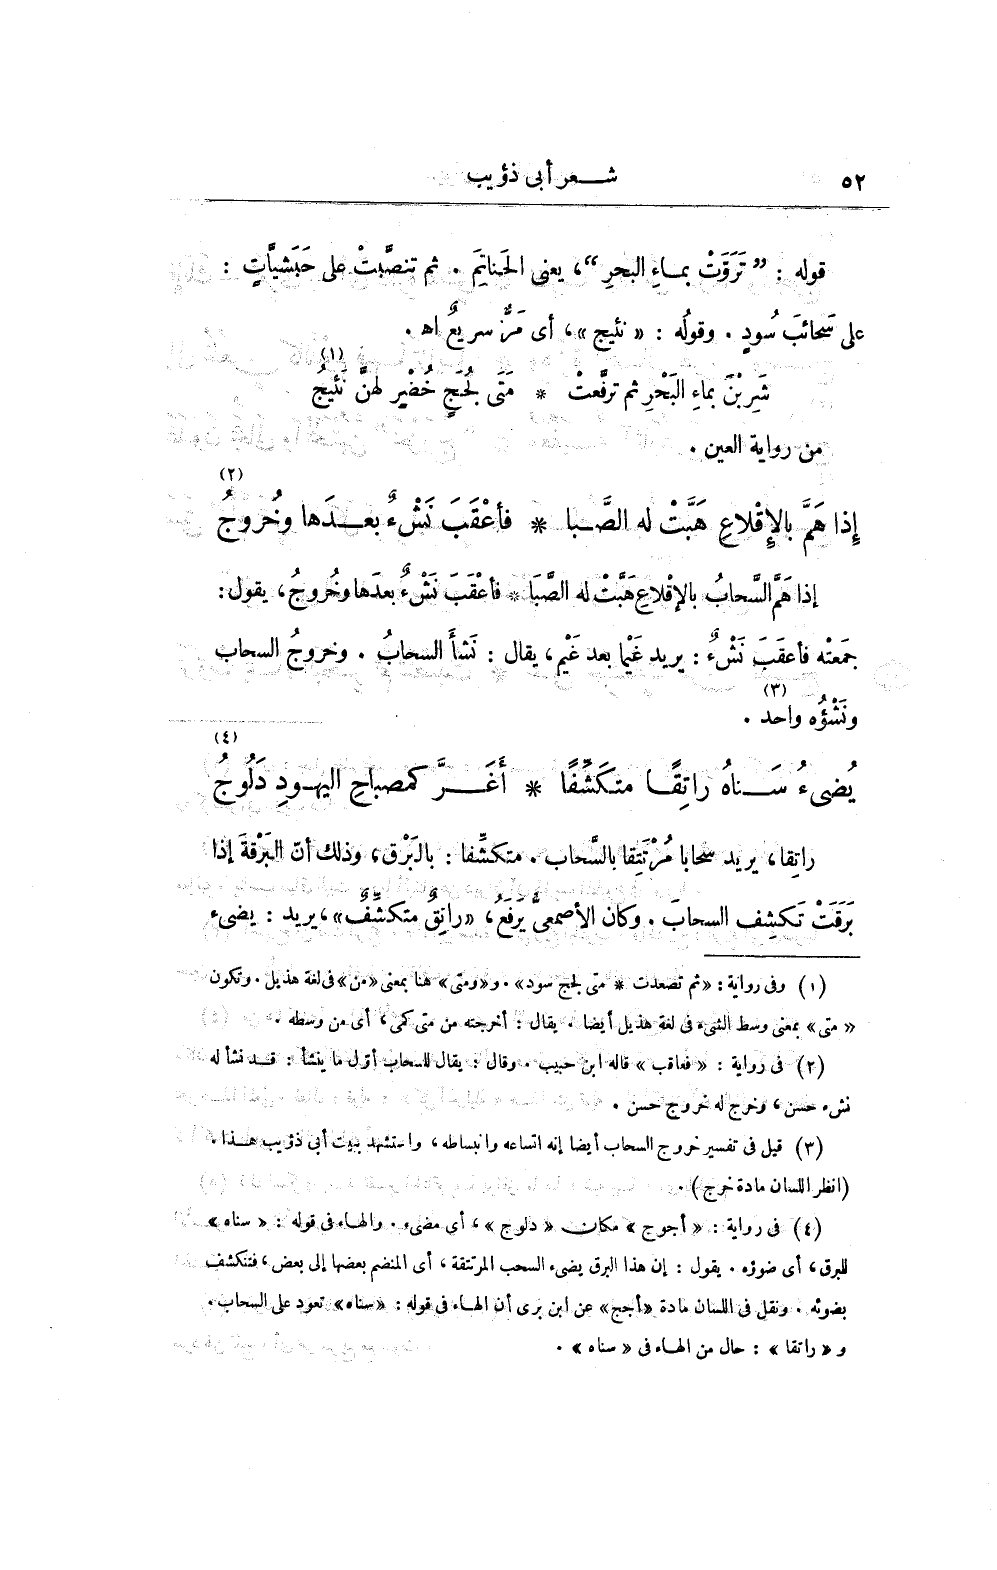 ٥٢
شعر أبى ذؤيب
قوله : ” تَرَوَّتْ بماءِ البحرِ “، يعنى الحَناتِمَ . ثم تنصَّبتْ على حَبَشيَّاتٍ :
على سَحائبَ سُودٍ . وقولُه : « نئيج »، أى مَرٌّ سريعٌ اه .
شَرِبْنَ بماءِ البَحْرِ ثم ترفَّعتْ * مَتَى لُجَجٍ خُضْرٍ لهنَّ نَئيجُ (١)
من رواية العين .
إِذا هَمَّ بالإِقْلاعِ هَبَّتْ له الصَّبا * فأعْقَبَ نَشْءٌ بعدَها وخُروجُ (٢)
إذا هَمَّ السَّحابُ بالإقْلاعِ هَبَّتْ له الصَّبَا * فأعْقَبَ نَشْءٌ بعدَها وخُروجُ، يقول :
جمَعتْه فأعقَبَ نَشْءٌ : يريد غَيْما بعد غَيْم، يقال : نَشأَ السحابُ . وخروجُ السحاب
ونَشْؤُه واحد (٣) .
يُضىءُ سَناهُ راتِقًا متكَشِّفًا * أَغَرَّ كمصباحِ اليهودِ دَلُوجُ (٤)
راتِقا، يريد سحابا مُرْتَتِقا بالسَّحاب . متكشِّفا : بالبَرْق، وذلك أنّ البَرْقةَ إذا
بَرَقَتْ تَكشِف السحابَ . وكان الأصمعىُّ يَرفَعُ، «راتقٌ متكشِّفٌ»، يريد : يضىء
(١) وفى رواية : «ثم تصعدت * متى لجج سود» . و«ومتى» هنا بمعنى «من» فى لغة هذيل . وتكون
« متى » بمعنى وسط الشىء فى لغة هذيل أيضا . يقال : أخرجته من متى كمى، أى من وسطه .
(٢) فى رواية : « فعاقب » قاله ابن حبيب . وقال : يقال للسحاب أوّل ما ينشأ : قد نشأ له
نشء حسن، وخرج له خروج حسن .
(٣) قيل فى تفسير خروج السحاب أيضا إنه اتساعه وانبساطه، واستشهد ببيت أبى ذؤيب هذا .
(انظر اللسان مادة خرج) .
(٤) فى رواية : « أجوج » مكان « دلوج »، أى مضىء . والهاء فى قوله : « سناه »
للبرق، أى ضوؤه . يقول : إن هذا البرق يضىء السحب المرتتقة، أى المنضم بعضها إلى بعض، فتنكشف
بضوئه . ونقل فى اللسان مادة «أجج» عن ابن برى أن الهاء فى قوله : «سناه» تعود على السحاب .
و « راتقا » : حال من الهاء فى « سناه » .